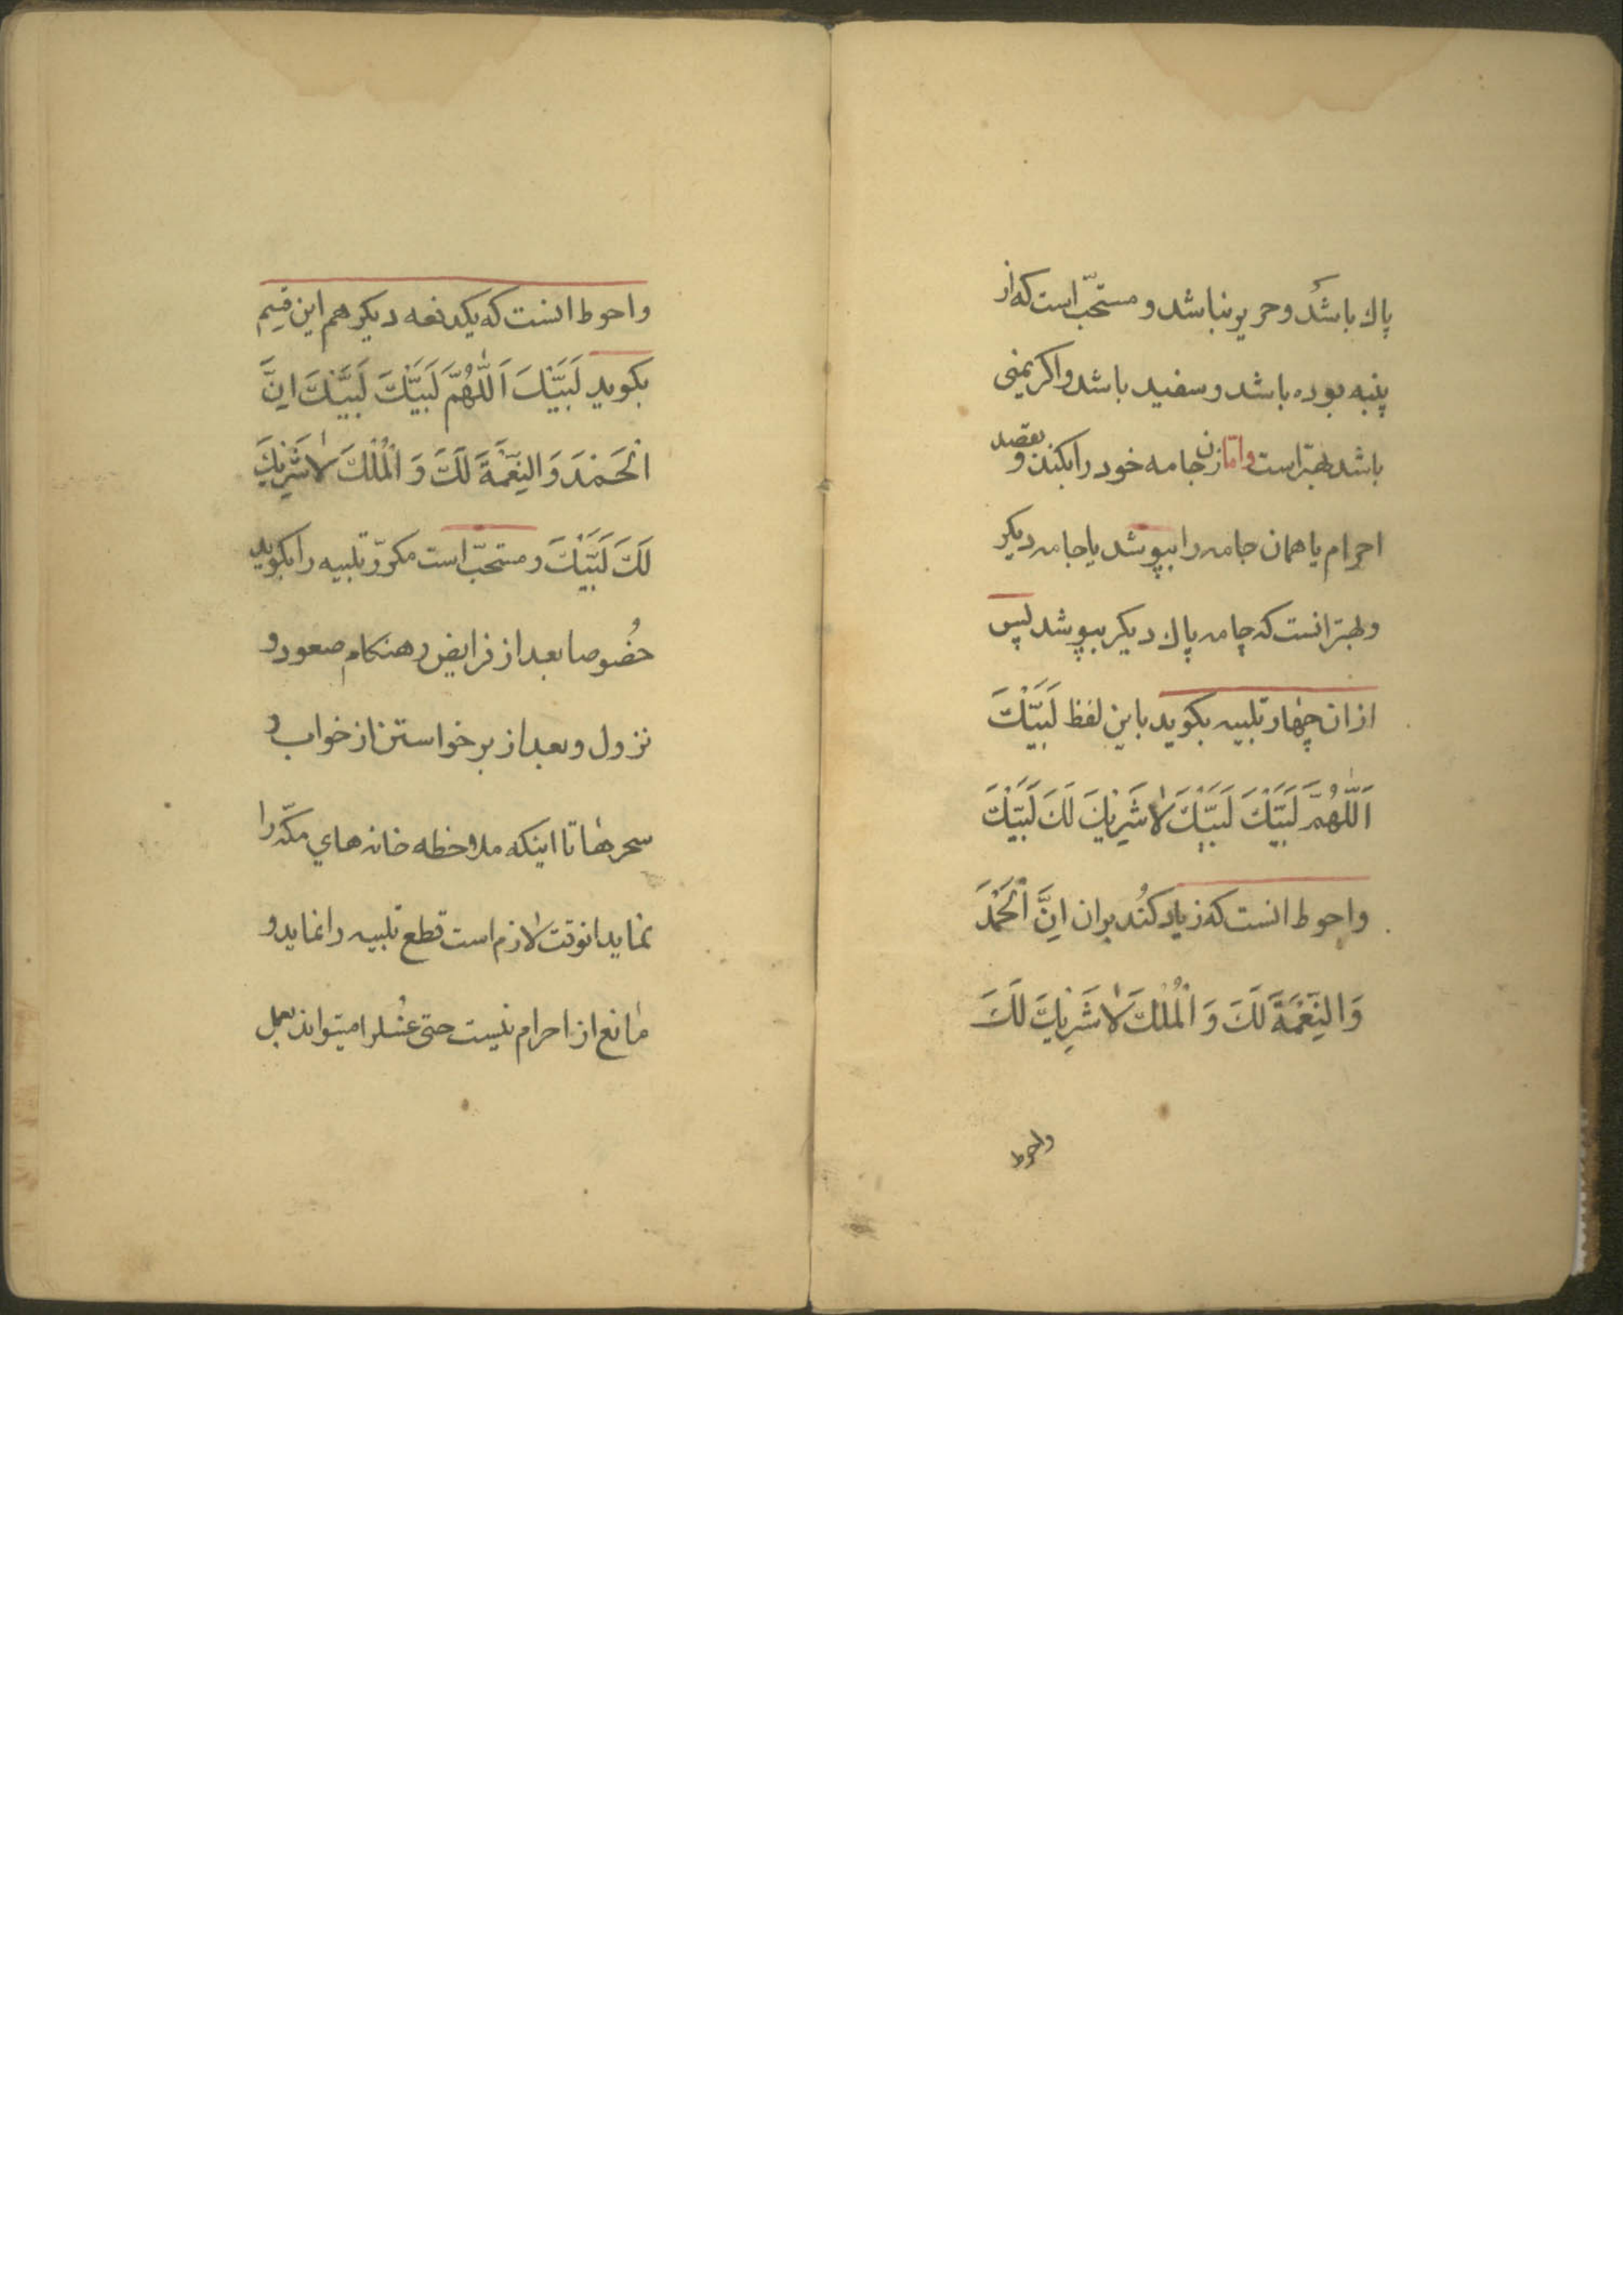 پاك باشد و حریر نباشد و مستحبّ است که از
پنبه بوده باشد و سفید باشد و اکر یمنی
باشد بهتر است و امّا زن جامه خود را بکند و بقصد
احرام یا همان جامه را بپوشد یا جامه دیکر
و بهتر انست که جامه پاك دیکر بپوشد پس
از ان چهار تلبیه بکوید باین لفظ لَبَّیْكَ
اَللّٰهُمَّ لَبَّیْكَ لَبَّیْكَ لاٰ شَرِیْكَ لَكَ لَبَّیْكَ
و احوط انست که زیاد کند بران اِنَّ الْحَمْدَ
وَ النِّعْمَةَ لَكَ وَ الْمُلْكَ لاٰ شَرِیْكَ لَكَ
واحوط
و احوط انست که یکدفعه دیکر هم این قسم
بکوید لَبَّیْكَ اَللّٰهُمَّ لَبَّیْكَ لَبَّیْكَ اِنَّ
الْحَمْدَ وَ النِّعْمَةَ لَكَ وَ الْمُلْكَ لاٰ شَرِیْكَ
لَكَ لَبَّیْكَ و مستحبّ است مکرّر تلبیه را بکوید
خصُوصا بعد از فرایض و هنکام صعود و
نزول و بعد از برخواستن از خواب و
سحرها تا اینکه ملاحظه خانه های مکّه را
نماید انوقت لازم است قطع تلبیه را نماید و
مانع از احرام نیست حتی غسلرا میتواند بعمل